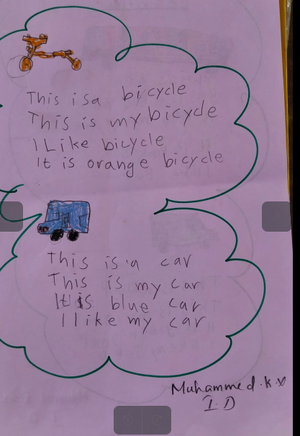 This is a bicycle
This is my bicycle
I Like bicycle
It is orange bicycle
This is a car
This is my car
It is blue car
I like my car
Muhammed.K.V
I.D